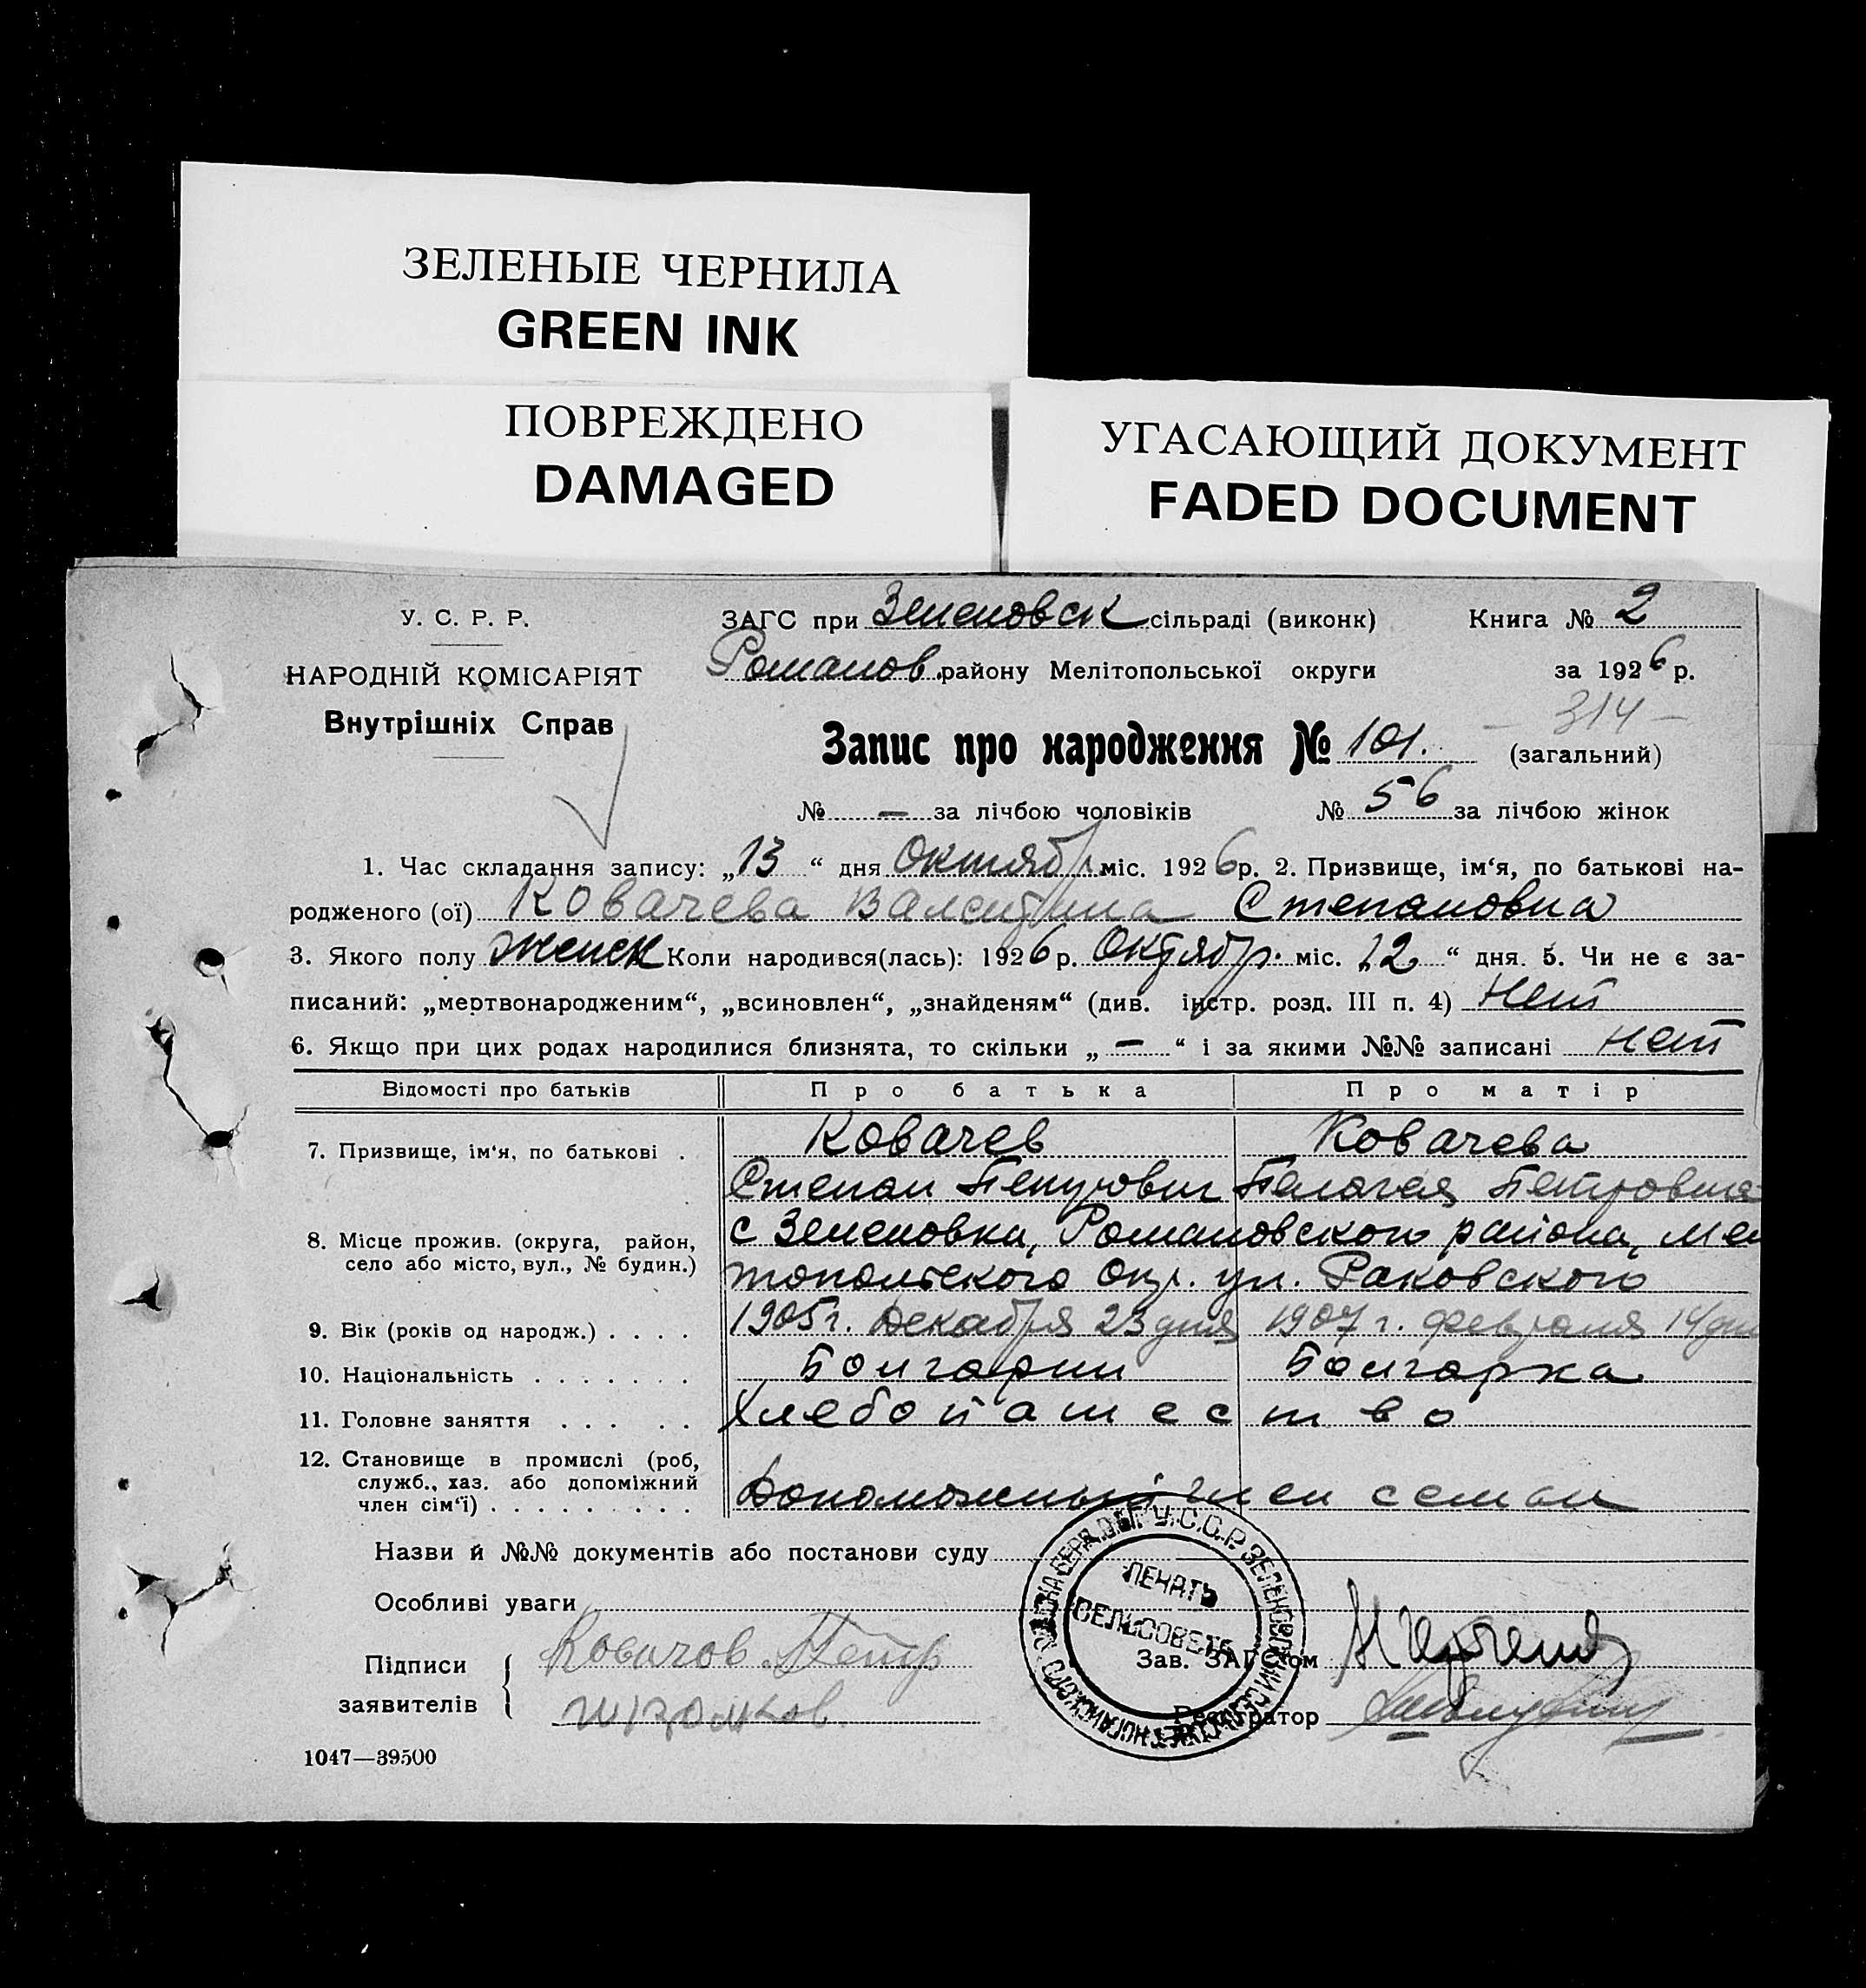 ЗЕЛЕНЫЕ ЧЕРНИЛА
GREEN INK
ПОВРЕЖДЕНО
DAMAGED
УГАСАЮЩИЙ ДОКУМЕНТ
FADED DOCUMENT
У. С. Р. Р.
НАРОДНІЙ КОМІСАРІЯТ
Внутрішніх Справ
ЗАГС при Зеленовск сільраді (виконк)
Романов. району Мелітопольської округи
Книга № 2
за 1926 р.
— 314 —
Запис про народження № 101. (загальний)
№ — за лічбою чоловіків № 56 за лічбою жінок
1. Час складання запису: „13“ дня Октябр міс. 1926 р. 2. Призвище, ім‘я, по батькові на-
родженого (ої) Ковачева Валентина Степановна
3. Якого полу женск Коли народився(лась): 1926 р. Октябр. міс. „12“ дня. 5. Чи не є за-
писаний: „мертвонародженим“, „всиновлен“, „знайденям“ (див. інстр. розд. III п. 4) Нет
6. Якщо при цих родах народилися близнята, то скільки „—“ і за якими №№ записані нет
Відомості про батьків Про батька Про матір
7. Призвище, ім‘я, по батькові . Ковачев Ковачева
Степан Петрович Пелагея Петровна
8. Місце прожив. (округа, район, село або місто, вул., № будин.) с Зеленовка, Романовского района, Мел
топольского Окр. ул. Раковского
9. Вік (років од народж.) . . . . 1905 г. Декабря 23 дня 1907 г. февраля 14 дня
10. Національність . . . . . . . Болгарин Болгарка
11. Головне заняття . . . . . Хлебопашество
12. Становище в промислі (роб, служб., хаз. або допоміжний член сім‘ї) . . . . . . . . . Допоможный член семьи
Назви й №№ документів або постанови суду
Особливі уваги
Підписи заявителів
Ковачов Петр
Зав. ЗАГС‘ом
Реєстратор
ПЕЧАТЬ
СЕЛЬСОВЕТА
1047—39500